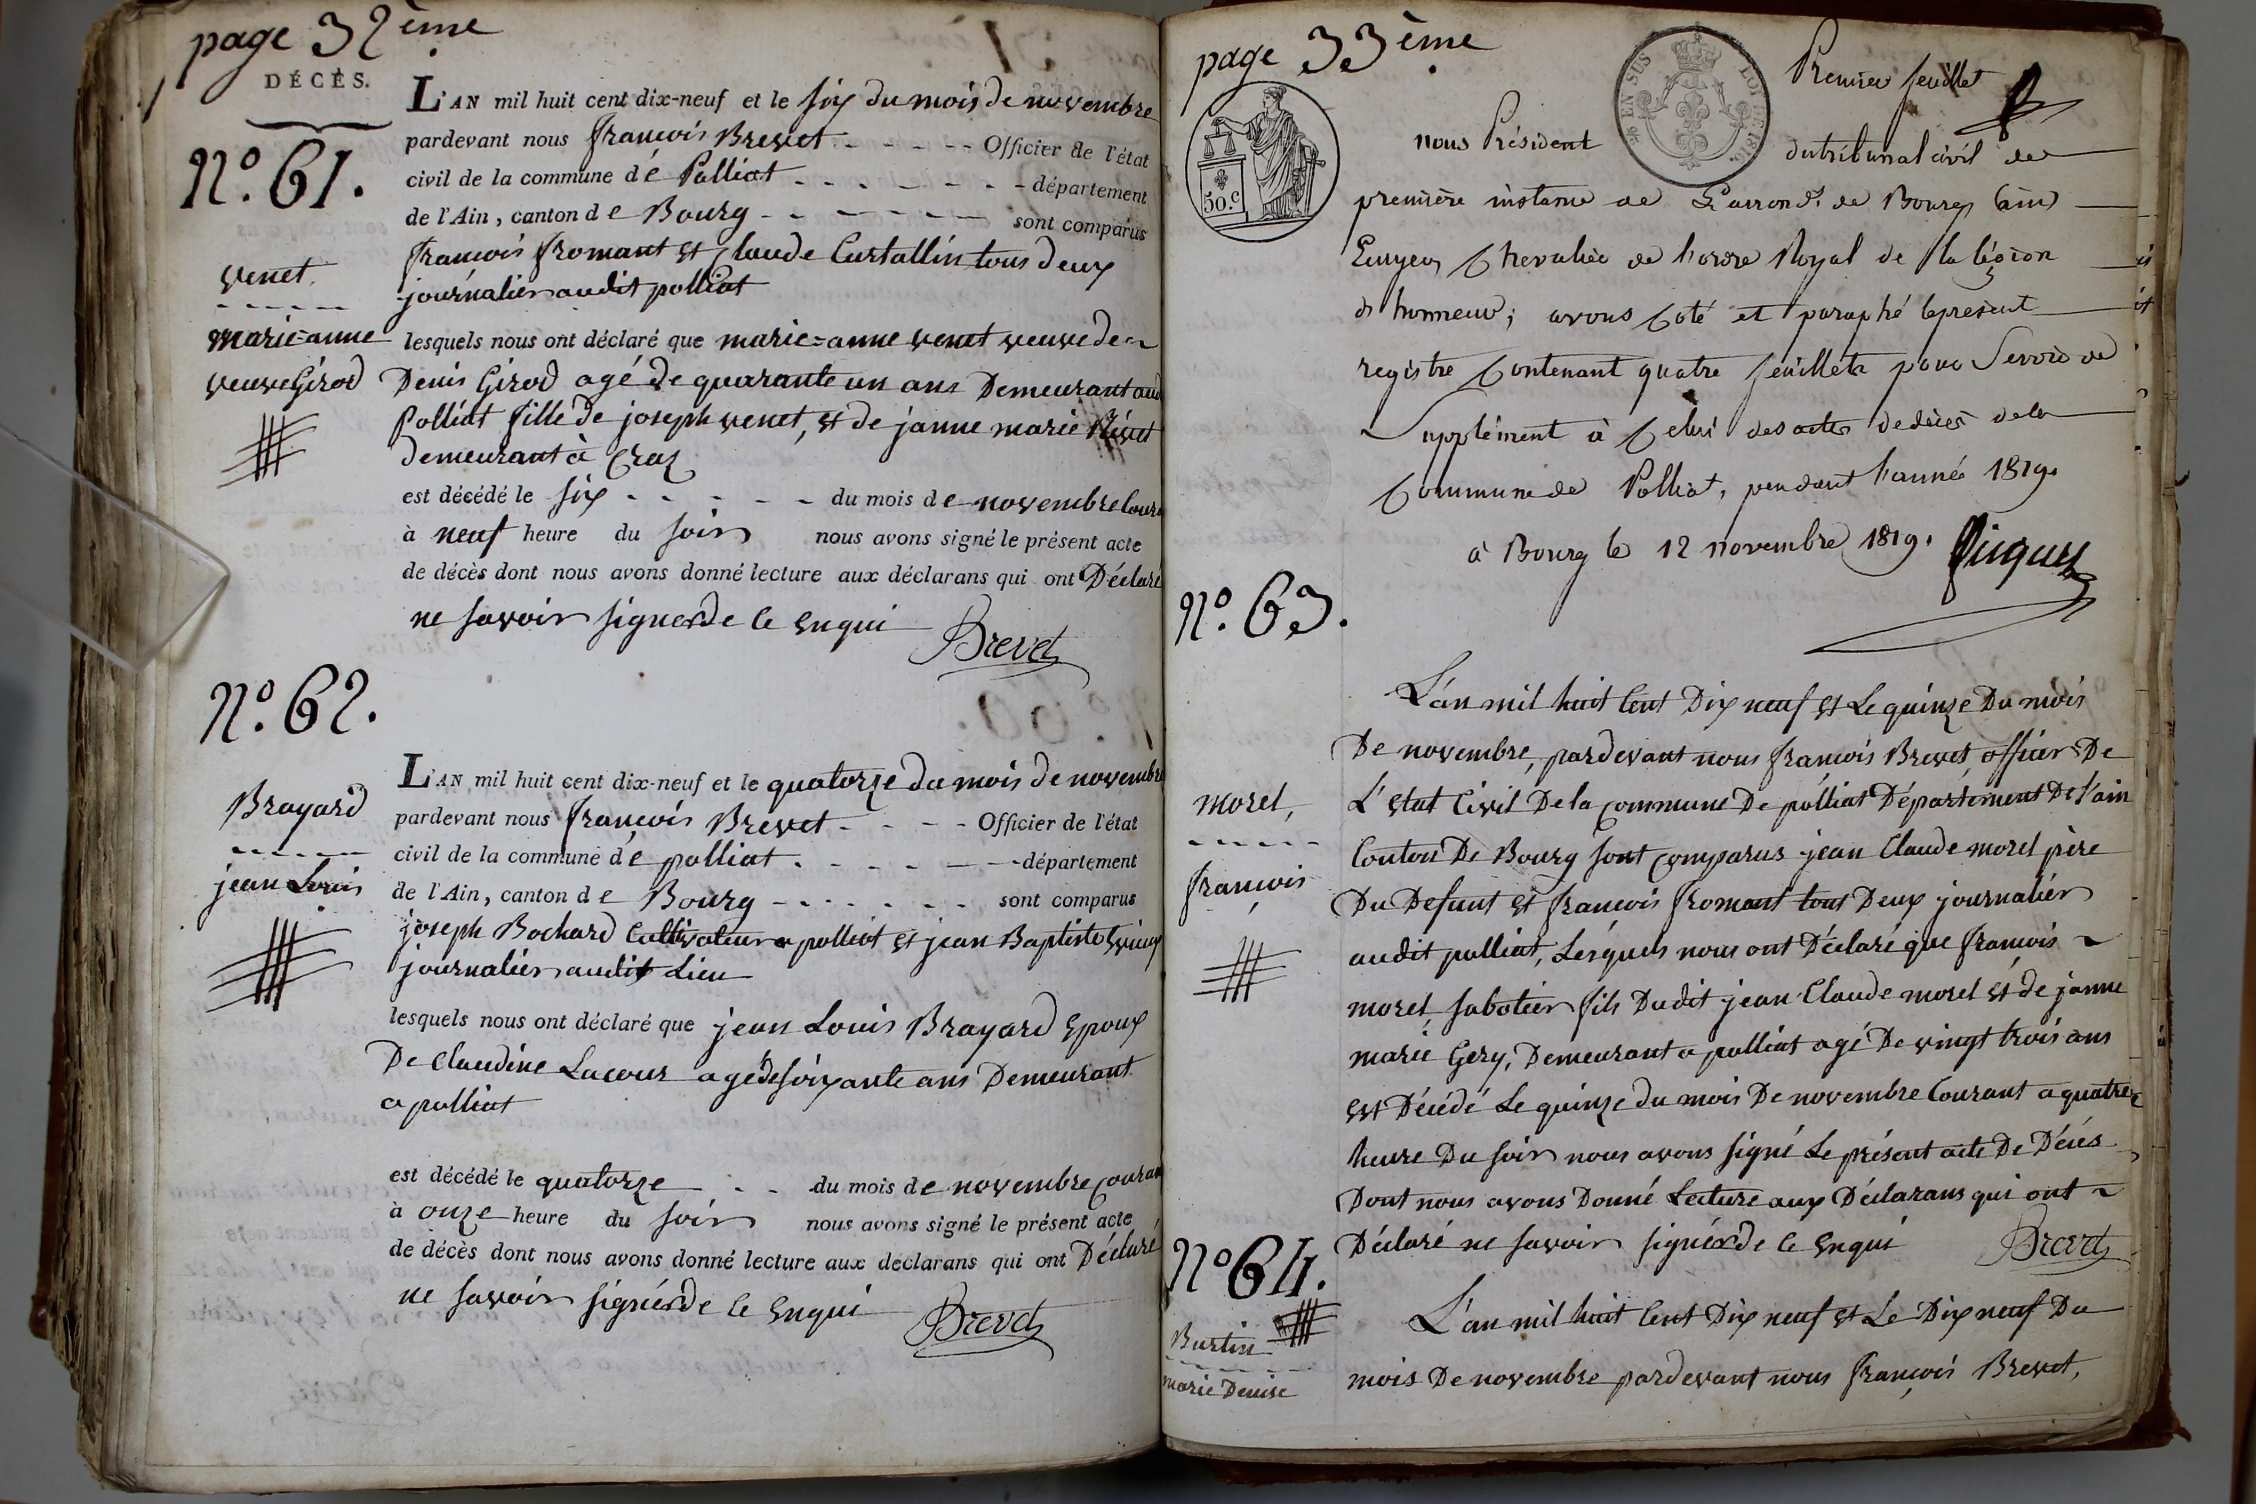 page 32ème
DÉCÈS.
L'AN mil huit cent dix-neuf et le six du mois de novembre
pardevant nous françois Brevet - - - - - Officier de l'état
N.o 61.
civil de la commune dé Polliat - - - - - - - département
de l'Ain, canton de Bourg - - - - - - sont comparus
françois fromant et Claude Curtallin tous deux
venet
journalier audit polliat
marie=anne
lesquels nous ont déclaré que marie=anne venet veuve de
veuve Girod
Denis Girod agé de quarante un ans Demeurant aud
Polliat fille de joseph venet, et de janne marie
demeurant à Craz
est décédé le six - - - - - du mois de novembre Cour
à neuf heure du soir nous avons signé le présent acte
de décès dont nous avons donné lecture aux déclarans qui ont Déclaré
ne savoir signer de ce enqui
Brevet
N.o 62.
L'AN mil huit cent dix-neuf et le quatorze du mois de novembre
Brayard
pardevant nous françois Brevet - - - - Officier de l'état
civil de la commune dé polliat - - - - - - département
jean Louis
de l'Ain, canton de Bourg - - - - - - sont comparus
joseph Bochard Cultivateur a polliat et jean Baptiste
journalier audit Lieu
lesquels nous ont déclaré que jean Louis Brayard Epoux
De Claudine Lacour agé de soixante ans Demeurant
a polliat
est décédé le quatorze - - du mois de novembre Couran
à onze heure du soir nous avons signé le présent acte
de décès dont nous avons donné lecture aux déclarans qui ont Déclaré
ne savoir signér de ce enqui
Brevet
page 33ème
EN SUS LOI DE 1816.
Premier feuillet
50.c
nous Président du tribunal civil de
première instance de L'arrond.t de Bourg (ain)
Ecuyer, Chevalier de l'ordre Royal de la légion
d'honneur; avons Coté et paraphé le present
registre Contenant quatre feuillets pour Servir de
Supplément à Celui des actes de décès de la
Commune de Polliat, pendant l'année 1819.
à Bourg le 12 novembre 1819. Picquet
N.o 63.
L'an mil huit Cent Dix neuf et Le quinze Du mois
De novembre, pardevant nous françois Brevet, officier De
morel,
L'etat Civil De la Commune De polliat Département De l'ain
Conton De Bourg sont comparus jean Claude morel père
françois
Du Defunt et françois fromant tout Deux journalier
audit polliat, Lesquels nous ont Déclaré que françois
morel sabotier fils Dudit jean Claude morel et de janne
marie Gery, Demeurant a polliat agé De vingt trois ans
est Décédé Le quinze du mois De novembre Courant a quatre
heure Du soir nous avons signé Le présent acte De Décés
Dont nous avons Donné Lecture aux Déclarans qui ont
Déclaré ne savoir signér de ce enqui Brevet
N.o 64.
L'an mil huit Cent Dix neuf et Le Dix neuf Du
Burtin
mois De novembre pardevant nous françois Brevet,
marie Denise